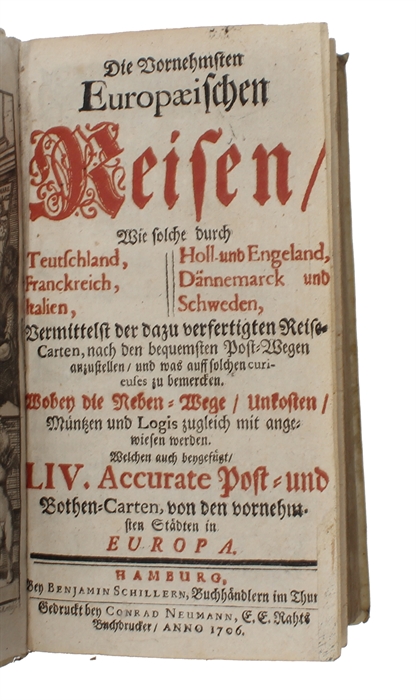 Die Vornehmsten
Europæischen
Reisen/
Wie solche durch
Teutschland,
Franckreich,
Italien,
Holl- und Engeland,
Dännemarck und
Schweden,
Vermittelst der dazu verfertigten Reise-
Carten, nach den bequemsten Post-Wegen
anzustellen/ und was auff solchen curi-
euses zu bemercken.
Wobey die Neben-Wege/ Unkosten/
Müntzen und Logis zugleich mit ange-
wiesen werden.
Welchen auch beygefügt/
LIV. Accurate Post- und
Bothen-Carten, von den vornehm-
sten Städten in
EUROPA.
HAMBURG,
Bey BENJAMIN SCHILLERN, Buchhändlern im Thum
Gedruckt bey CONRAD NEUMANN, E. E. Rahts
Buchdrucker/ ANNO 1706.